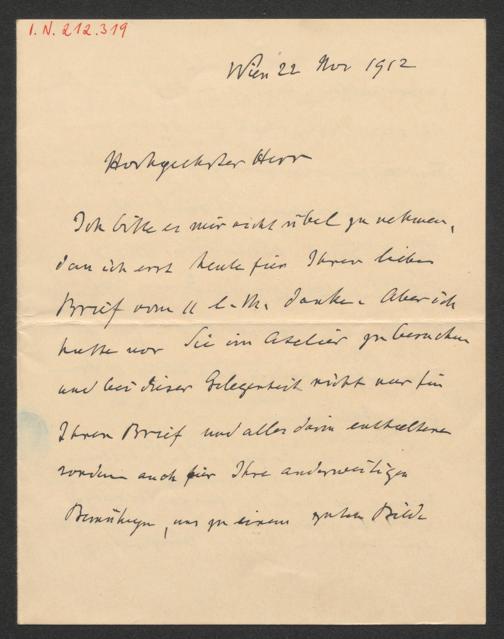 I. N. 212.319
Wien 22 Nov 1912
Hochgeehrter Herr
Ich bitte es mir nicht übel zu nehmen,
dass ich erst heute für Ihren lieben
Brief vom 11 l. M. danke. Aber ich
hatte vor Sie im Atelier zu besuchen
und bei dieser Gelegenheit nicht nur für
Ihren Brief und alles darin enthaltene
sondern auch für Ihre anderweitigen
Bemühungen, uns zu einem guten Bilde